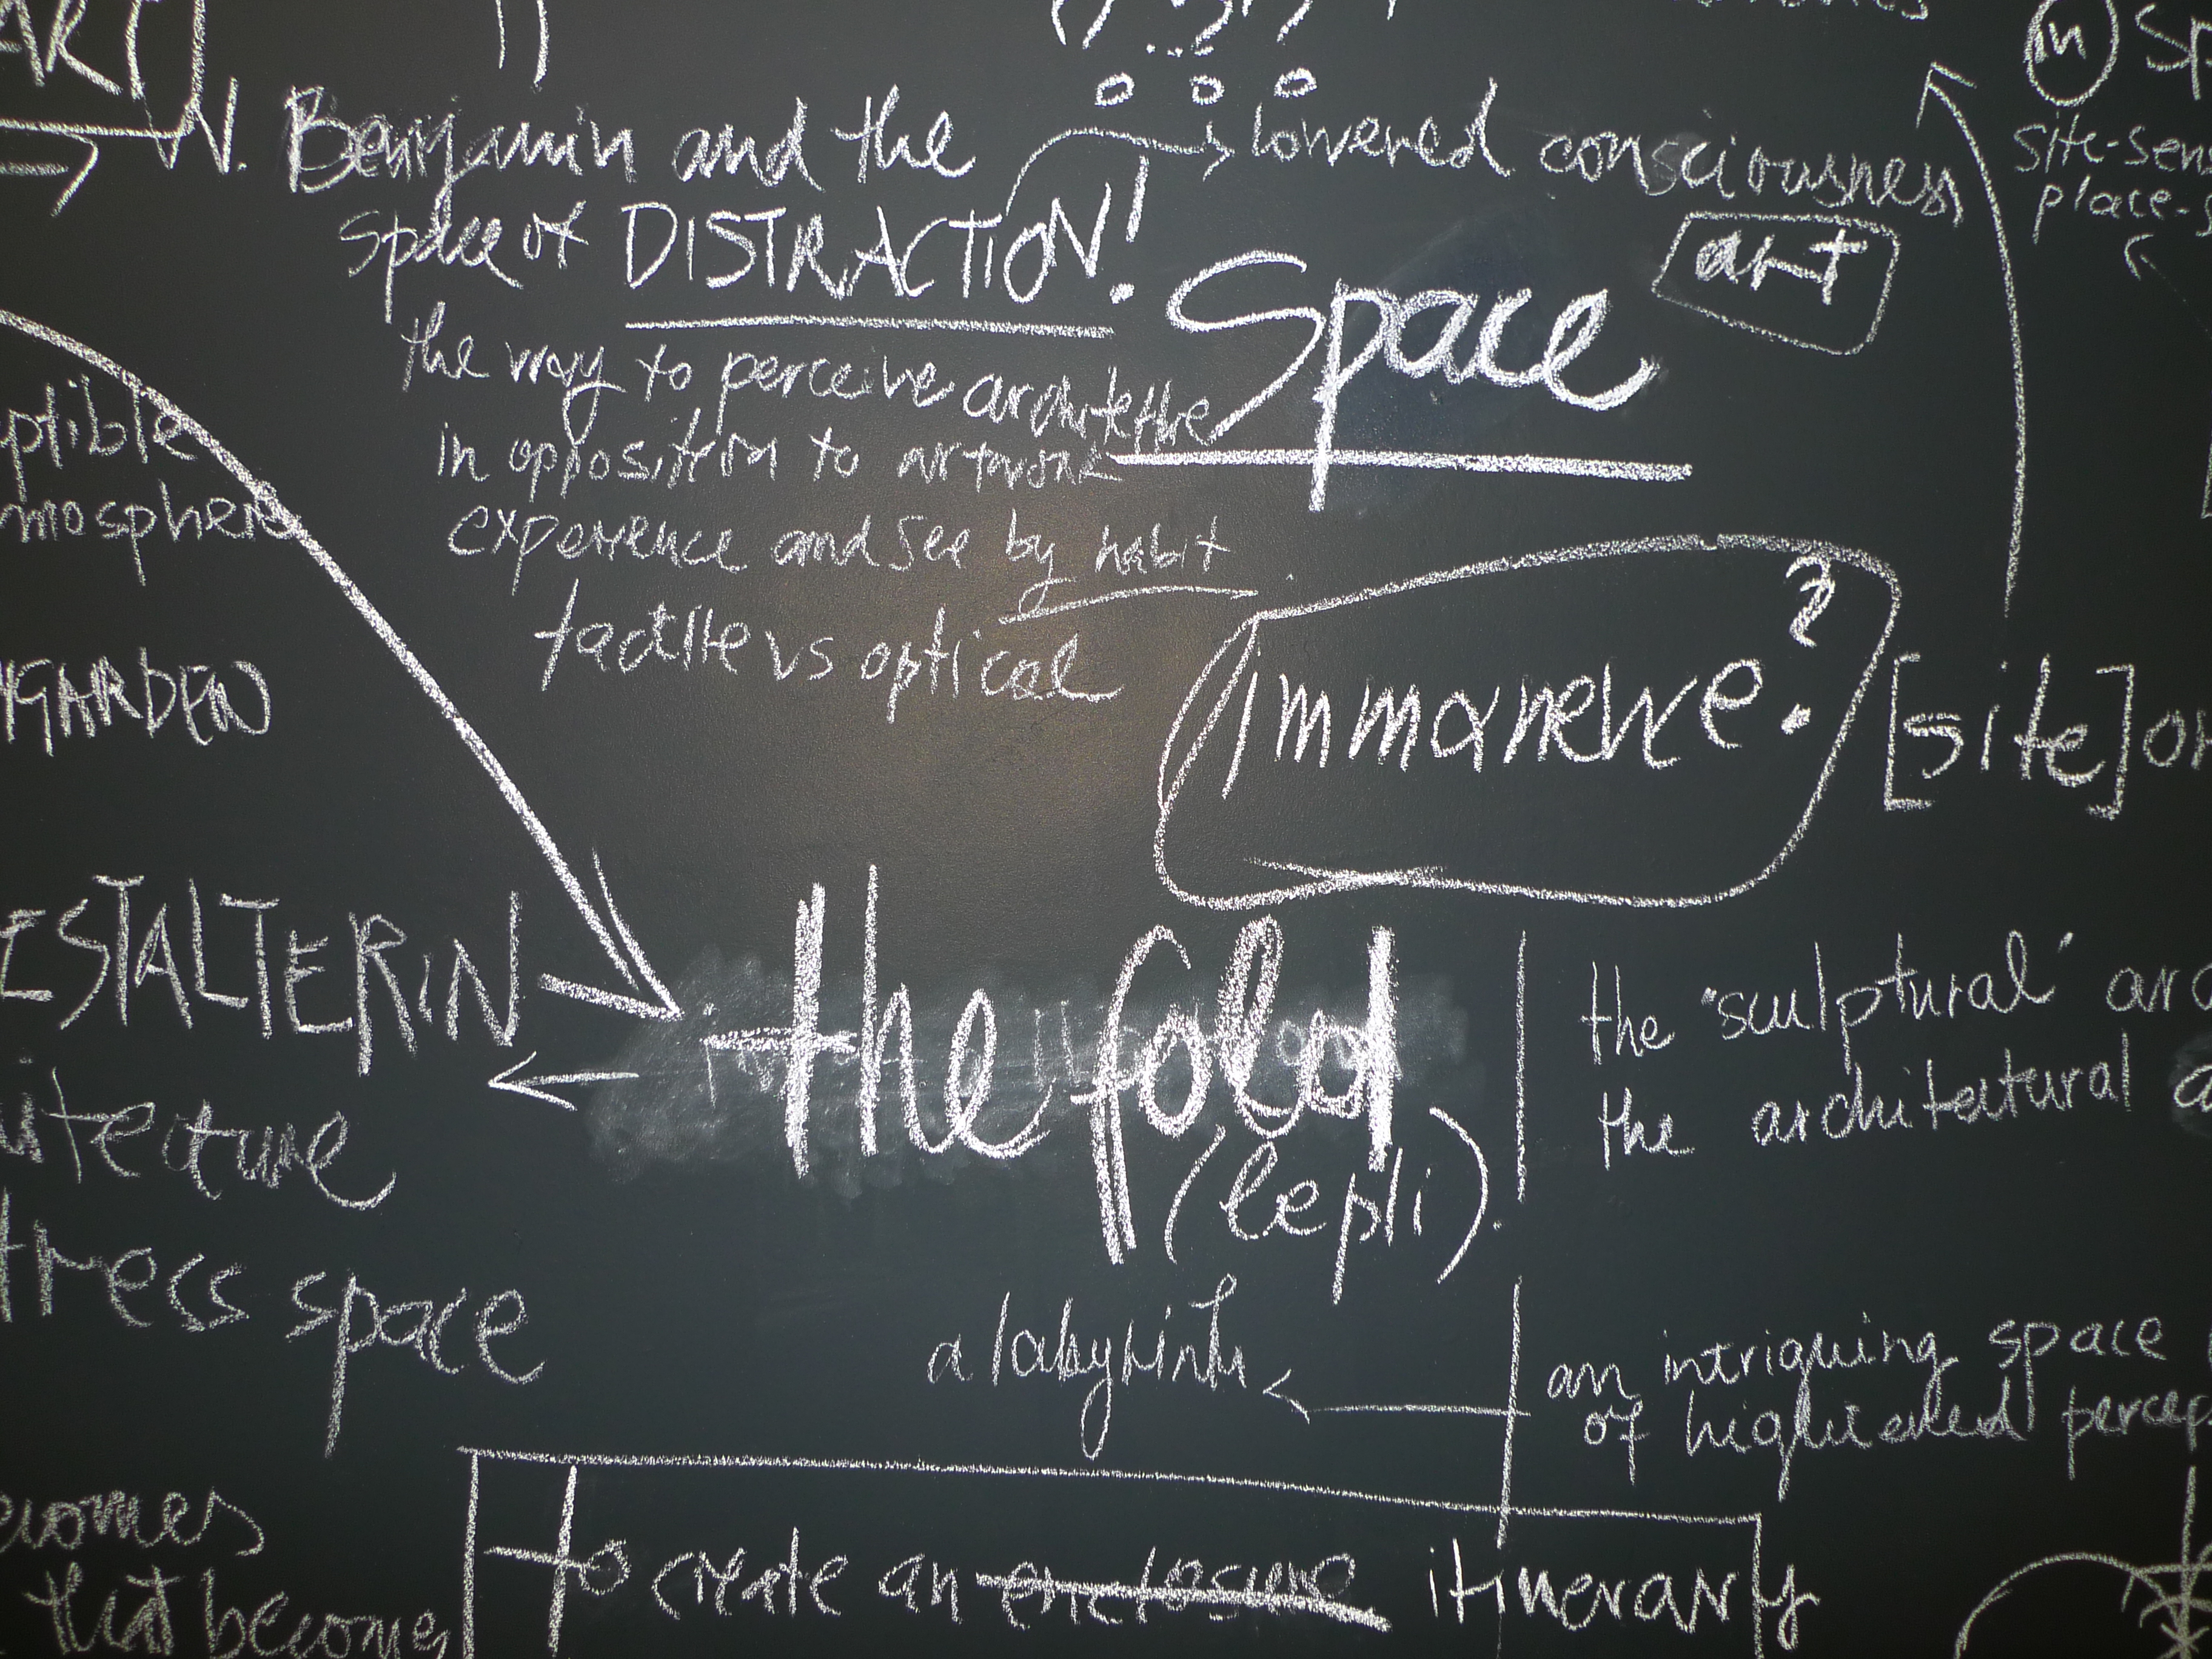 W. Benjamin and the
space of DISTRACTION!
lowered consciousness
the way to perceive architecture
in opposition to artwork
experience and see by habit
tactile vs optical
Space
art
immanence?
[site] or
in
site-sens
place-s
ptible
mospher
GARDEN
ESTALTERIN
itecture
tress space
the fold
(le pli).
the "sculptural" arc
the architectural a
a labyrinth
an intriguing space
of highened percep
to create an enclosure itinerary
ecomes
that become